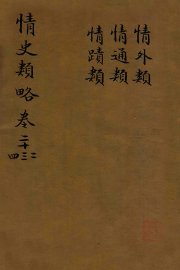 情外類
情通類
情蹟類
情史類略卷二十二三四